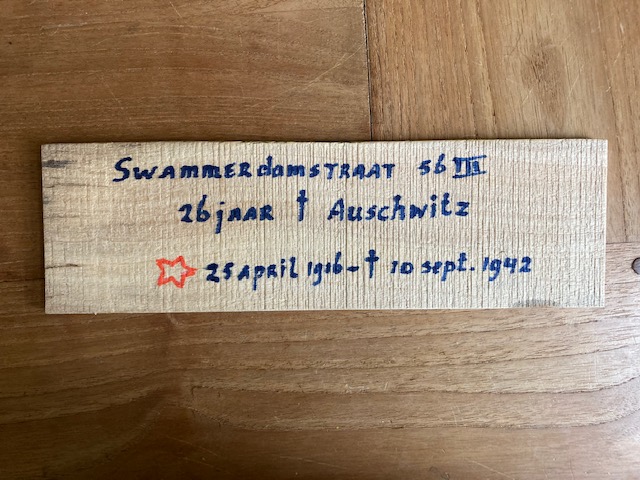 Swammerdamstraat 56 III
26 jaar † Auschwitz
25 april 1916 - † 10 sept. 1942